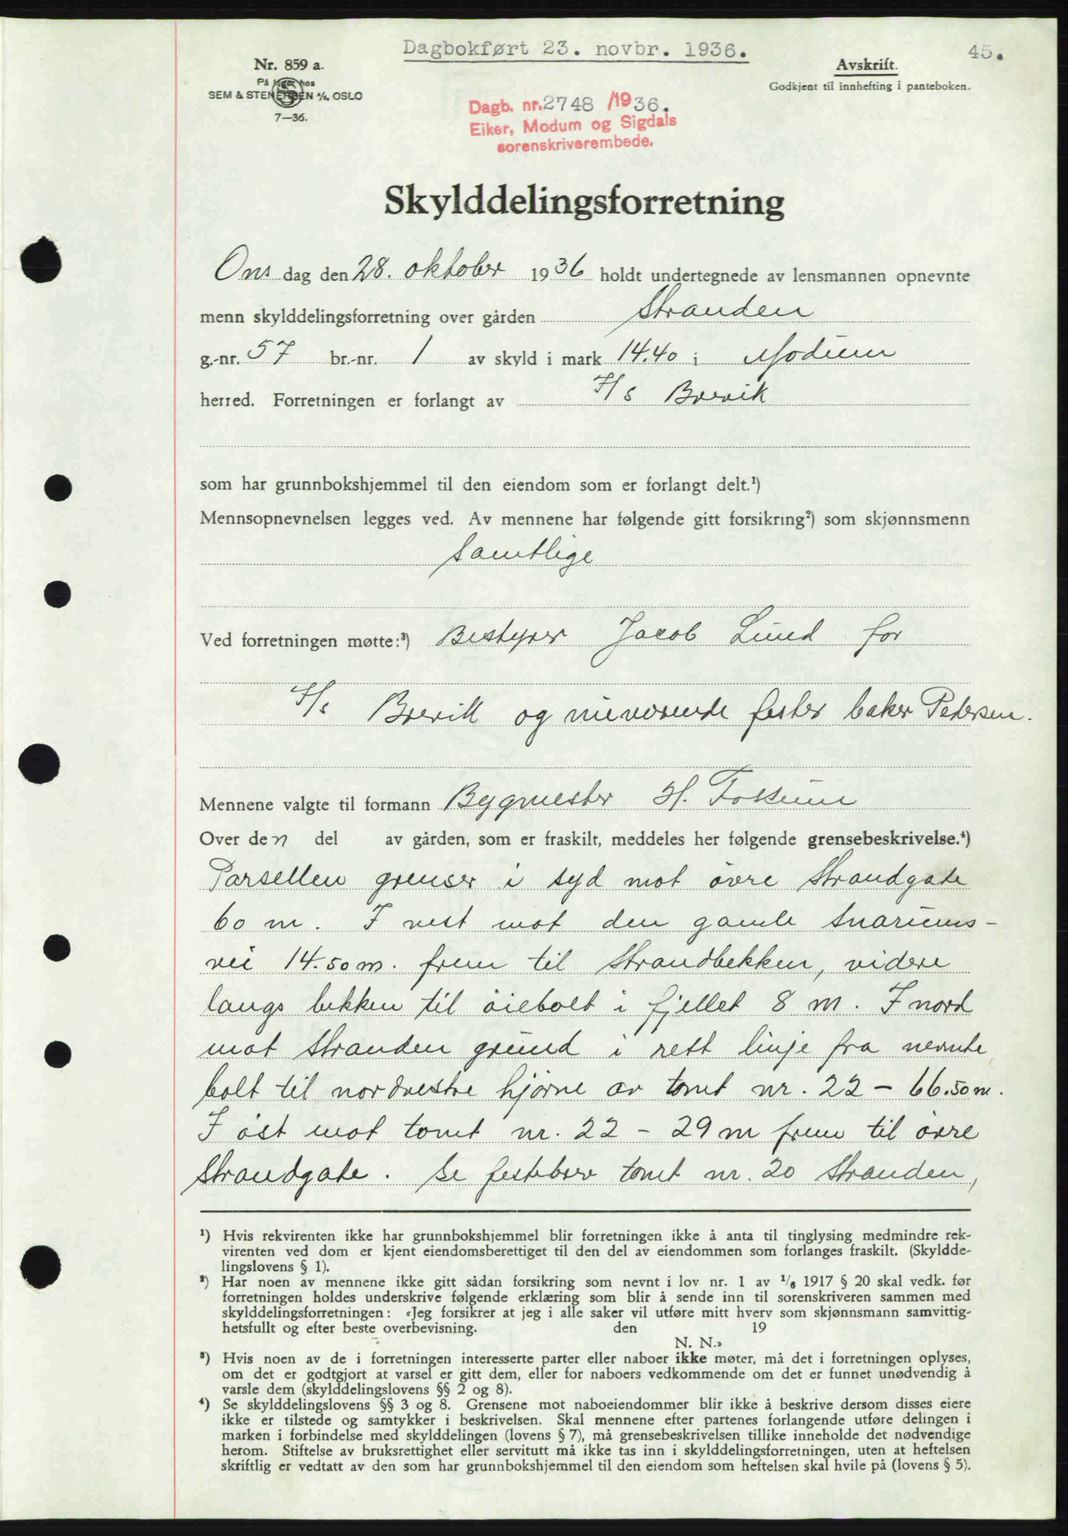 Dagbokført 23. novbr. 1936.
45.
Nr. 859 a.
På lager hos
SEM & STENERSEN A/S, OSLO
7—36.
Avskrift.
Godkjent til innhefting i panteboken.
Dagb. nr. 2748 /1936.
Eiker, Modum og Sigdals
sorenskriverembede.
Skylddelingsforretning
Ons dag den 28. oktober 1936 holdt undertegnede av lensmannen opnevnte
menn skylddelingsforretning over gården Stranden
g.-nr. 57 br.-nr. 1 av skyld i mark 14.40 i Modum
herred. Forretningen er forlangt av I/S Brevik
som har grunnbokshjemmel til den eiendom som er forlangt delt.¹)
Mennsopnevnelsen legges ved. Av mennene har følgende gitt forsikring²) som skjønnsmenn
Samtlige
Ved forretningen møtte:³) Bestyrer Jacob Lund for
I/S Brevik og nuværende fester baker Pedersen.
Mennene valgte til formann Bygmester H. Fossum
Over den del av gården, som er fraskilt, meddeles her følgende grensebeskrivelse.⁴)
Parsellen grenser i syd mot øvre Strandgate
60 m. I vest mot den gamle Snarums-
vei 14.50 m. frem til Strandbekken, videre
langs bekken til øiebolt i fjellet 8 m. I nord
mot Stranden grund i rett linje fra nevnte
bolt til nordvestre hjørne av tomt nr. 22 – 66.50 m.
I øst mot tomt nr. 22 – 29 m frem til øvre
Strandgate. Se festebrev tomt nr. 20 Stranden,
¹) Hvis rekvirenten ikke har grunnbokshjemmel blir forretningen ikke å anta til tinglysing medmindre rek-
virenten ved dom er kjent eiendomsberettiget til den del av eiendommen som forlanges fraskilt. (Skyldde-
lingslovens § 1).
²) Har noen av mennene ikke gitt sådan forsikring som nevnt i lov nr. 1 av ¹/₆ 1917 § 20 skal vedk. før
forretningen holdes underskrive følgende erklæring som blir å sende inn til sorenskriveren sammen med
skylddelingsforretningen: «Jeg forsikrer at jeg i alle saker vil utføre mitt hverv som skjønnsmann samvittig-
hetsfullt og efter beste overbevisning. den 19
N. N.»
³) Hvis noen av de i forretningen interesserte parter eller naboer ikke møter, må det i forretningen oplyses,
om det er godtgjort at varsel er gitt dem, eller for naboers vedkommende om det er funnet unødvendig å
varsle dem (skylddelingslovens §§ 2 og 8).
⁴) Se skylddelingslovens §§ 3 og 8. Grensene mot naboeiendommer blir ikke å beskrive dersom disses eiere
ikke er tilstede og samtykker i beskrivelsen. Skal mennene efter partenes forlangende utføre delingen i
marken i forbindelse med skylddelingen (lovens § 7), må grensebeskrivelsen tillike inneholde det nødvendige
herom. Stiftelse av bruksrettighet eller servitutt må ikke tas inn i skylddelingsforretningen, uten at heftelsen
skriftlig er vedtatt av den som har grunnbokshjemmel til den eiendom som heftelsen skal hvile på (lovens § 5).